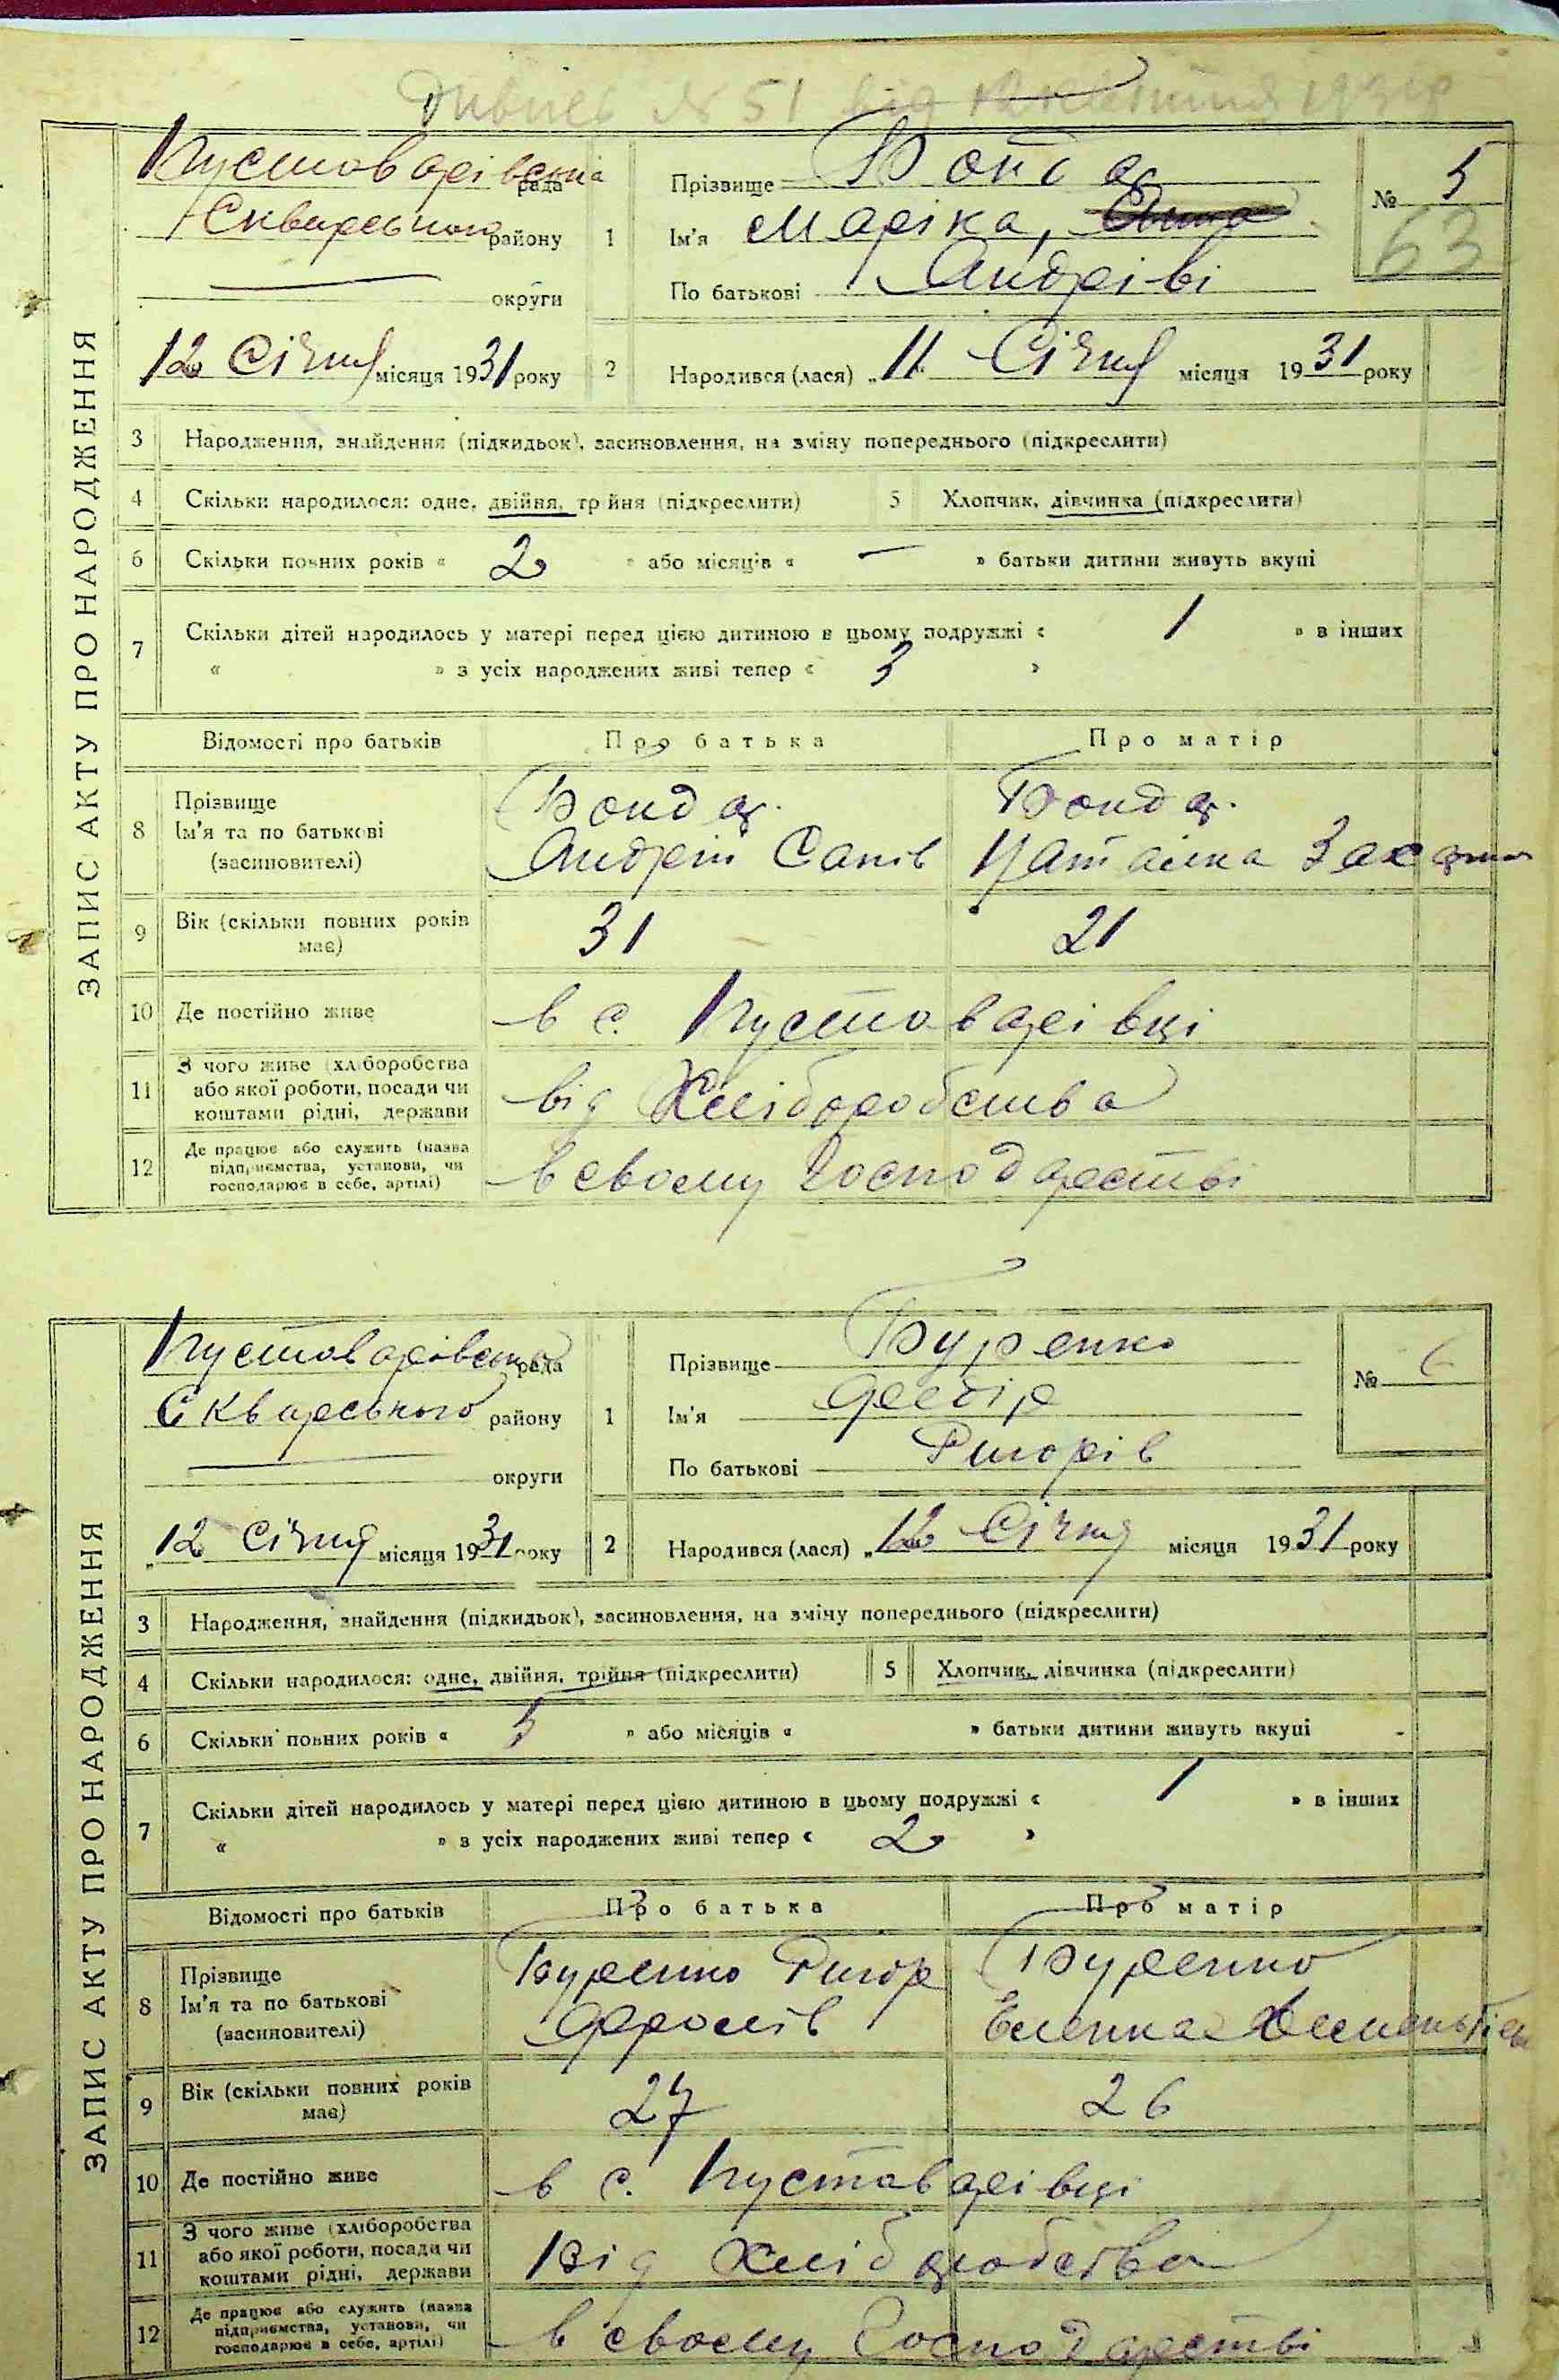 Дивись № 51 від
ЗАПИС АКТУ ПРО НАРОДЖЕННЯ
Пустоварівська рада
Сквирського району
округи
12 Січня місяця 1931 року
1 Прізвище Бондар
Ім'я Маріка,
По батькові Андріїві
№ 5
63
2 Народився (лася) „11" Січня місяця 1931 року
3 Народження, знайдення (підкидьок), засиновлення, на зміну попереднього (підкреслити)
4 Скільки народилося: одне, двійня, трійня (підкреслити) 5 Хлопчик, дівчинка (підкреслити)
6 Скільки повних років « 2 » або місяців « — » батьки дитини живуть вкупі
7 Скільки дітей народилось у матері перед цією дитиною в цьому подружжі « 1 » в інших
« » з усіх народжених живі тепер « 3 »
Відомості про батьків Про батька Про матір
8 Прізвище Ім'я та по батькові (засиновителі)
Бондар. Бондар.
Андрій Сапів Наталка
9 Вік (скільки повних років має) 31 21
10 Де постійно живе в с. Пустоварівці
11 З чого живе (хліборобства або якої роботи, посади чи коштами рідні, держави від Хліборобства
12 Де працює або служить (назва підприємства, установи, чи господарює в себе, артілі) в своему Господарстві
ЗАПИС АКТУ ПРО НАРОДЖЕННЯ
Пустоварівська рада
Сквирського району
округи
„12 Січня місяця 1931 року
1 Прізвище Буренко
Ім'я
По батькові Григорів
№ 6
2 Народився (лася) „12 Січня місяця 1931 року
3 Народження, знайдення (підкидьок), засиновлення, на зміну попереднього (підкреслити)
4 Скільки народилося: одне, двійня, трійня (підкреслити) 5 Хлопчик, дівчинка (підкреслити)
6 Скільки повних років « 5 » або місяців « » батьки дитини живуть вкупі
7 Скільки дітей народилось у матері перед цією дитиною в цьому подружжі « 1 » в інших
« » з усіх народжених живі тепер « 2 »
Відомості про батьків Про батька Про матір
8 Прізвище Ім'я та по батькові (засиновителі)
Буренко Григор Буренко
9 Вік (скільки повних років має) 27 26
10 Де постійно живе в с. Пустоварівці
11 З чого живе (хліборобства або якої роботи, посади чи коштами рідні, держави Від Хліборобства
12 Де працює або служить (назва підприємства, установи, чи господарює в себе, артілі) в своему Господарстві